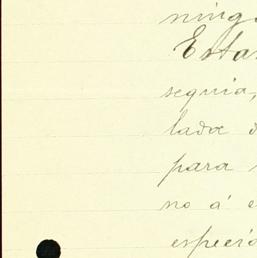 ning
Esta
seguia,
lada d
para
no á e
especi